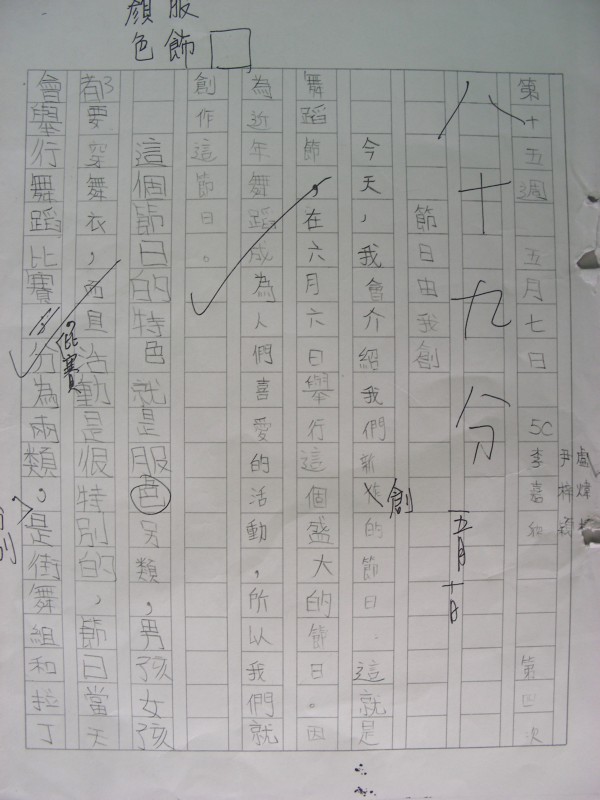 第十五週 五月七日 5C 李嘉和 第四次
八十九分
五月十日
節日由我創
今天，我會介紹我們新作的節日．這就是
創
舞蹈節，在六月六日舉行這個盛大的節日。因
為近年舞蹈成為人們喜愛的活動，所以我們就
創作這節日。
這個節日的特色就是服色另類，男孩女孩
服飾
顏色
都要穿舞衣，而且活動是很特別的，節日當天
會舉行舞蹈比賽，分為兩類。是街舞組和拉丁
比賽
分別